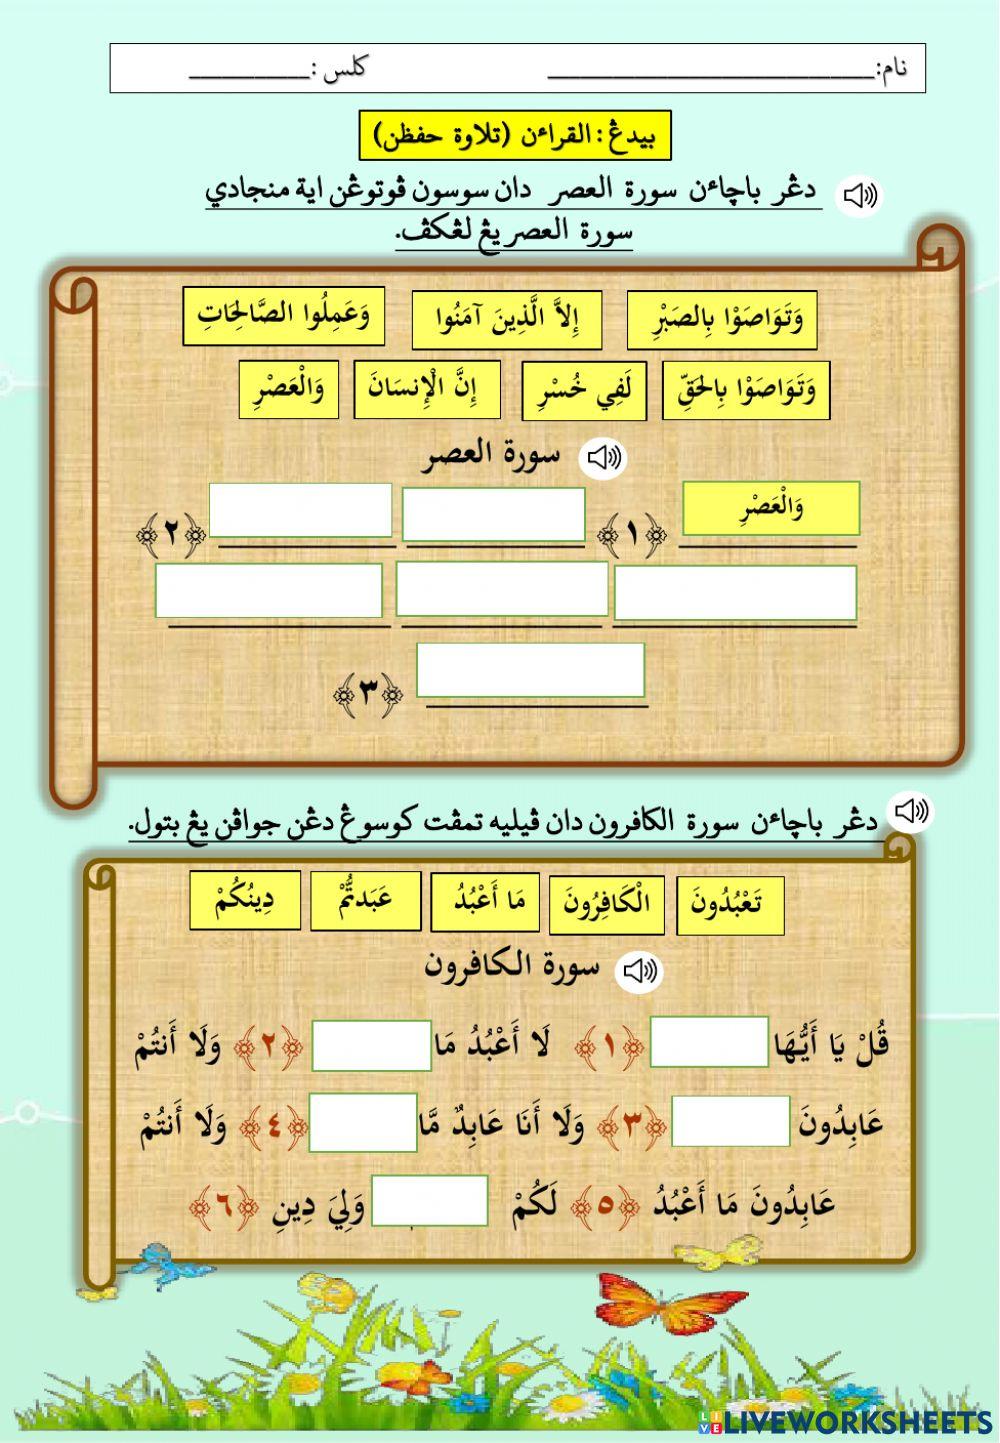 نام:_________________________ كلس :__________
بيدڠ: القراءن (تلاوة حفظن)
دڠر باچاءن سورة العصر دان سوسون ڤوتوڠن اية منجادي
سورة العصر يڠ لڠكڤ.
وَتَوَاصَوْا بِالصَبْرِ إِلاَّ الَّذِينَ آمَنُوا وَعَمِلُوا الصَّالِحَاتِ
وَتَوَاصَوْا بِالحَقِّ لَفِي خُسْرِ إِنَّ الْإِنسَانَ وَالْعَصْرِ
سورة العصر
وَالْعَصْرِ ﴿١﴾ ﴿٢﴾
﴿٣﴾
دڠر باچاءن سورة الكافرون دان ڤيليه تمڤت كوسوڠ دڠن جواڤن يڠ بتول.
تَعْبُدُونَ الْكَافِرُونَ مَا أَعْبُدُ عَبَدتُّمْ دِينُكُمْ
سورة الكافرون
قُلْ يَا أَيُّهَا ﴿١﴾ لَا أَعْبُدُ مَا ﴿٢﴾ وَلَا أَنتُمْ
عَابِدُونَ ﴿٣﴾ وَلَا أَنَا عَابِدٌ مَّا ﴿٤﴾ وَلَا أَنتُمْ
عَابِدُونَ مَا أَعْبُدُ ﴿٥﴾ لَكُمْ وَلِيَ دِينِ ﴿٦﴾
LIVE LIVEWORKSHEETS